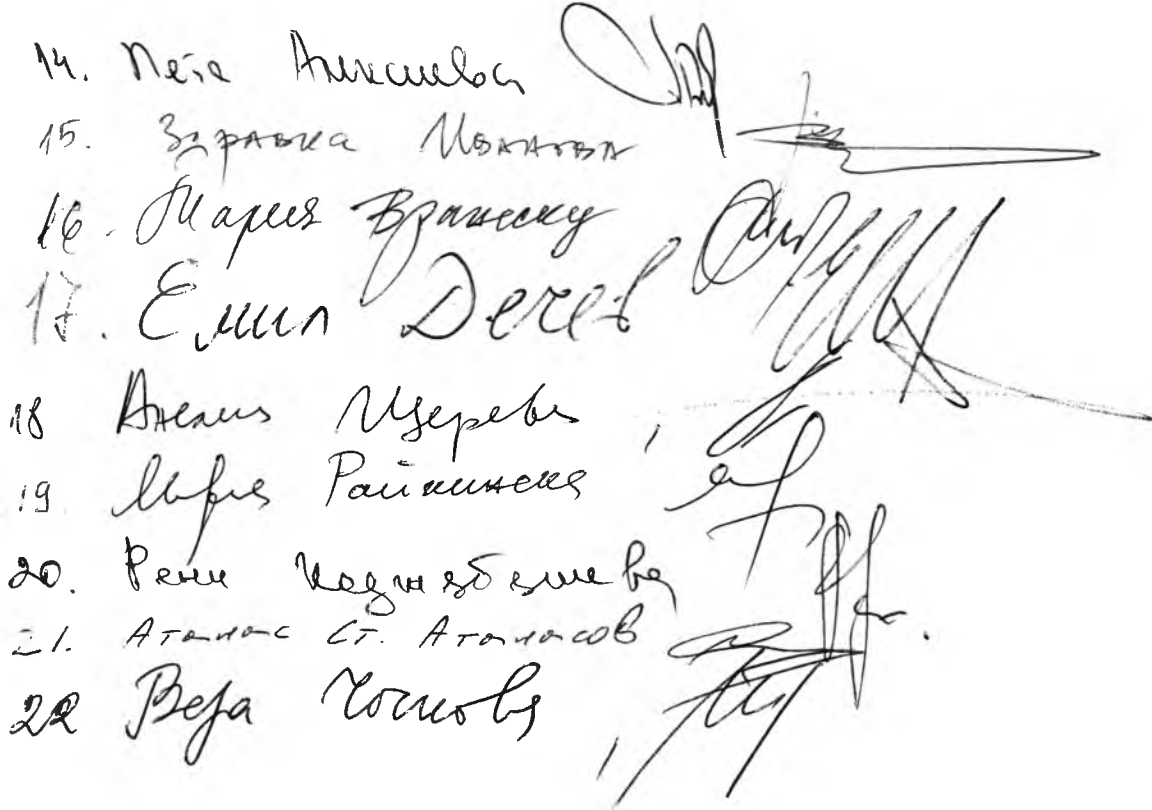 14. Петя Алексиева
15. Здравка Иванова
16. Мария Вранеску
17. Емил Дечев
18 Анелия Щерева
19 Мария Райкинска
20. Рени
21. Атанас Ст. Атанасов
22 Вера Чочкова